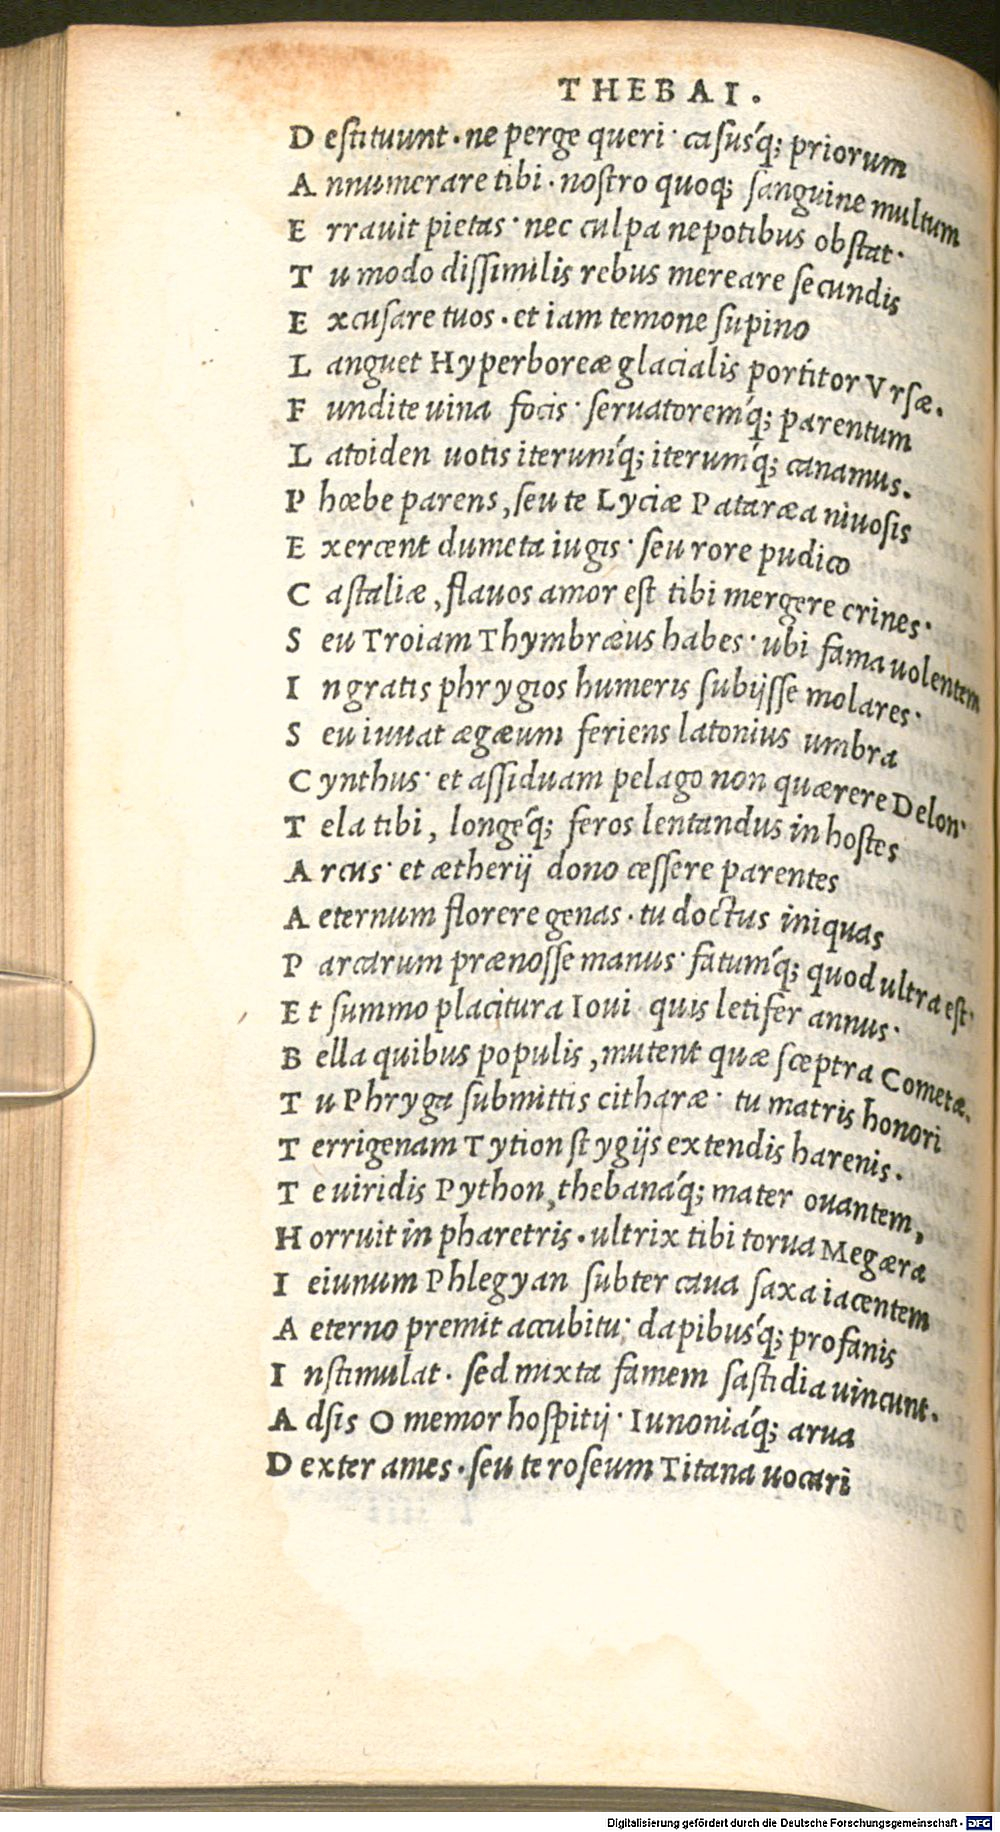 THEBAI.
D estituunt. ne perge queri· casus´q; priorum
A nnumerare tibi. nostro quoq; sanguine multum
E rrauit pietas· nec culpa nepotibus obstat·
T u modo dissimilis rebus mereare secundis
E xcusare tuos. et iam temone supino
L anguet Hyperboreæ glacialis portitor Vrsæ.
F undite uina focis· seruatorem´q; parentum
L atoiden uotis iterum´q; iterum´q; canamus.
P hœbe parens, seu te Lyciæ Pataræa niuosis
E xercent dumeta iugis· seu rore pudico
C astaliæ, flauos amor est tibi mergere crines·
S eu Troiam Thymbræus habes· ubi fama uolentem
I ngratis phrygios humeris subijsse molares·
S eu iuuat ægæum feriens latonius umbra
C ynthus· et assiduam pelago non quærere Delon·
T ela tibi, longe´q; feros lentandus in hostes
A rcus· et ætherij dono cessere parentes
A eternum florere genas. tu doctus iniquas
P arcarum prænosse manus· fatum´q; quod ultra est·
E t summo placitura Ioui· quis letifer annus·
B ella quibus populis, mutent quæ sceptra Cometæ.
T u Phryga submittis citharæ· tu matris honori
T errigenam Tytion stygijs extendis harenis.
T e uiridis Python, thebana´q; mater ouantem,
H orruit in pharetris. ultrix tibi torua Megæra
I eiunum Phlegyan subter caua saxa iacentem
A eterno premit accubitu· dapibus´q; profanis
I nstimulat. sed mixta famem sastidia uincunt.
A dsis O memor hospitij· Iunonia´q; arua
D exter ames. seu te roseum Titana uocari
Digitalisierung gefördert durch die Deutsche Forschungsgemeinschaft - DFG